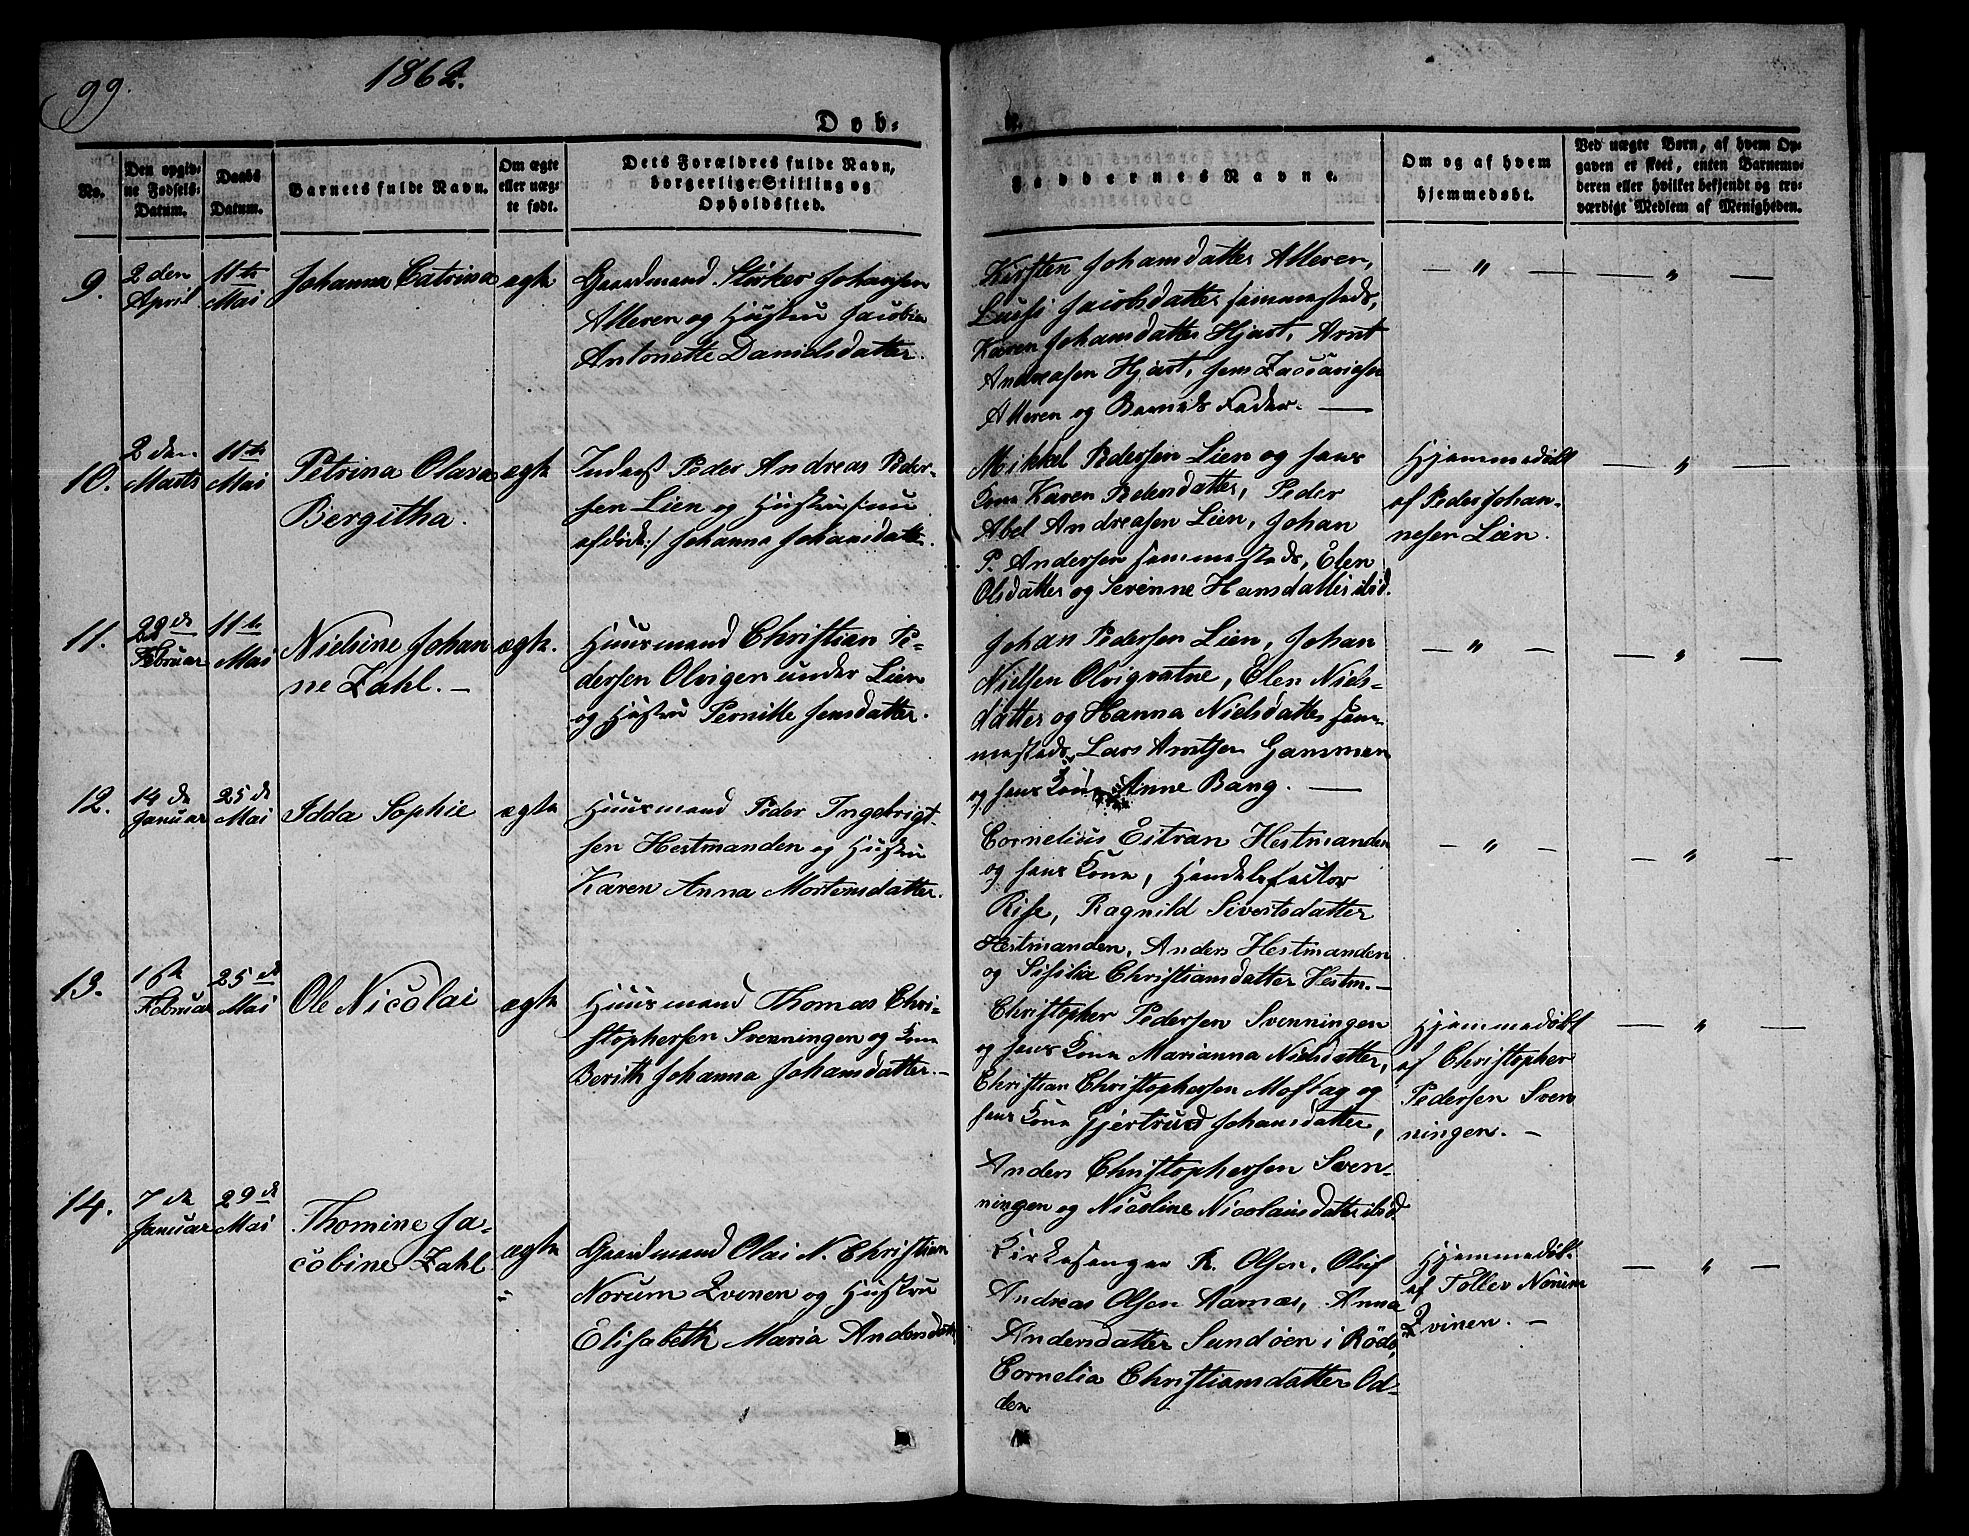 99.
1862.
Dob-
No.
Den opgiv-
ne Fødsels-
Datum.
Daabs
Datum.
Barnets fulde Navn.
Om ægte
eller uæg-
te født.
Dets Forældres fulde Navn,
borgerlige Stilling og
Opholdssted.
Faddernes Navne.
Om og af hvem
hjemmedøbt.
Ved uægte Børn, af hvem Op-
gaven er skeet, enten Barnemo-
deren eller hvilket bekjendt og tro-
værdigt Medlem af Menigheden.
9.
2den
April
11te
Mai
Johanna Catrina
ægte
Gaardmand Stärker Johansen
Alteren og Hustru Jacobia
Antonette Danielsdatter.
Kirsten Johansdatter Alteren,
Jacobsdatter sammesteds,
Karen Johansdatter Hjart, Arnt
Andreasen Hjart, Jens Zaccariasen
Alteren og Barnets Fader. —
— " —
— " —
10.
2den
Marts
11te
Mai
Petrina Olava
Bergitha.
ægte
Inderst Peder Andreas Peder-
sen Lien og Hustru (nu
afdöde:) Johanna Johansdatt.
Mikkel Pedersen Lien og hans
Kone Karen Pedersdatter, Peder
Abel Andreasen Lien, Johan
P. Andersen sammesteds, Elen
Olsdatter og Serenne Hansdatter ibid.
Hjemmedöbt
af Peder Johan-
nesen Lien.
— " —
11.
22de
Februar
11te
Mai
Nielsine Johan
ne Zahl. —
ægte.
Huusmand Christian Pe-
dersen Olvigen under Lien
og Hustru Pernille Jensdatter.
Johan Pedersen Lien, Johan
Nielsen Olvigvatne, Elen Niels-
datter og Hanna Nielsdatter sam-
mesteds, Lars Arntsen Gammen
og hans Kone Anne Bang. —
— " —
— " —
12.
14de
Januar
25de
Mai
Idda Sophie
ægte
Huusmand Peder Ingebrigt-
sen Hestmanden og Hustru
Karen Anna Mortensdatter.
Cornelius Eitran Hestmanden
og hans Kone, Handelsfactor
Rise, Ragnild Sivertsdatter
Hestmanden, Anders Hestmanden
og Sisilie Christiansdatter Hestm. —
— " —
— " —
13.
1ste
Februar
25de
Mai
Ole Nicolai
ægte
Huusmand Thomas Chri-
stophersen Svenningen og Kone
Berith Johanna Johansdatter. —
Christopher Pedersen Svenningen
og hans Kone Marianna Nielsdatter,
Christian Christophersen Mostag og
hans Kone Gjertrud Johansdatter,
Anders Christophersen Sven-
ningen og Nicoline Nicolaisdatter ibid.
Hjemmedöbt
af Christopher
Pedersen Sven
ningen. —
— " —
14.
7de
Januar
29de
Mai
Thomine Ja-
cobine Zahl
ægte
Gaardmand Olai N. Christian
Norum Qvinen og Hustru
Elisabeth Maria Andersdatt.
Kirkesanger R. Olsen, Oluf
Andreas Olsen Aarnæs, Anna
Andersdatter Sundöen i Rödö,
Cornelia Christiansdatter Od-
den
Hjemmedöbt
af Toller Norum
Qvinen. —
— " —